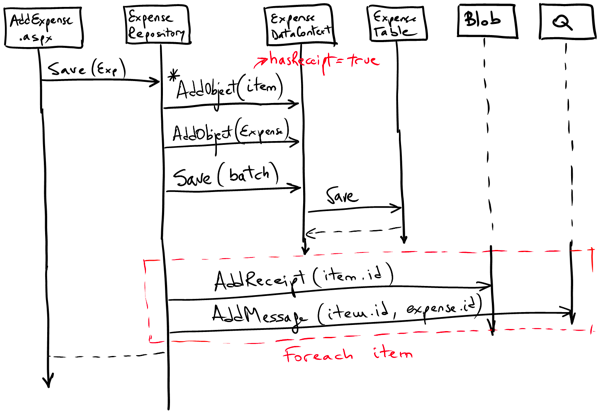 AddExpense
.aspx
Expense
Repository
Expense
DataContext
Expense
Table
Blob
Q
hasReceipt = true
Save (Exp)
* AddObject (item)
AddObject (Expense)
Save (batch)
Save
AddReceipt (item.id)
AddMessage (item.id, expense.id)
Foreach item